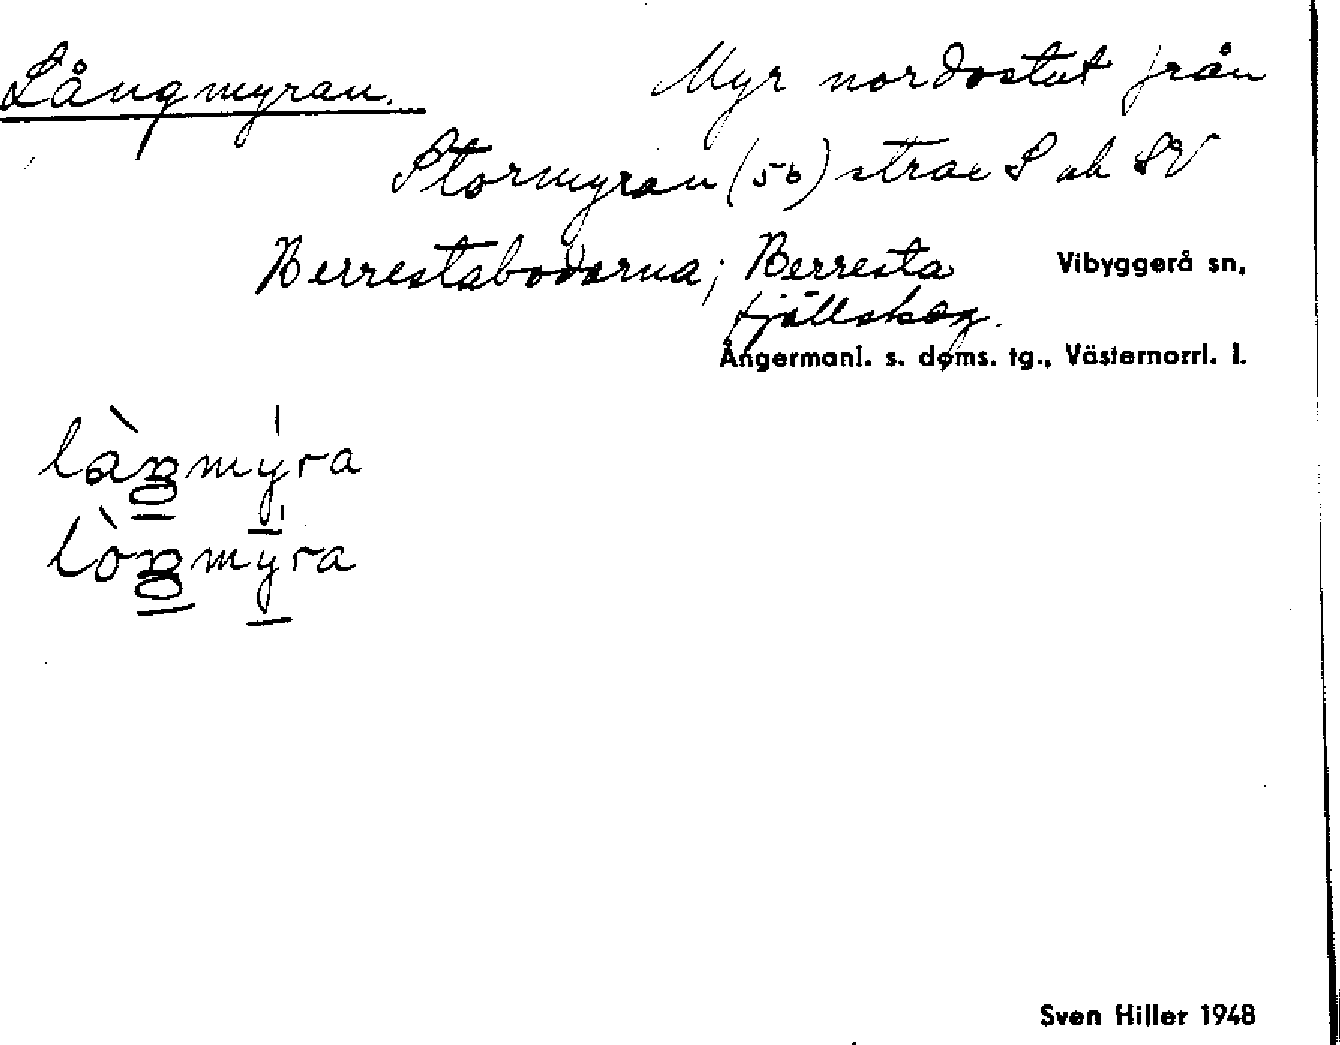 Långmyran.
Myr nordostut från
Stormyran (56) strax S och SV
Berrestabodarna; Berresta
fjällskog.
Vibyggerå sn,
Ångermanl. s. doms. tg., Västernorrl. l.
làŋmýra
lòŋmýra
Sven Hiller 1948